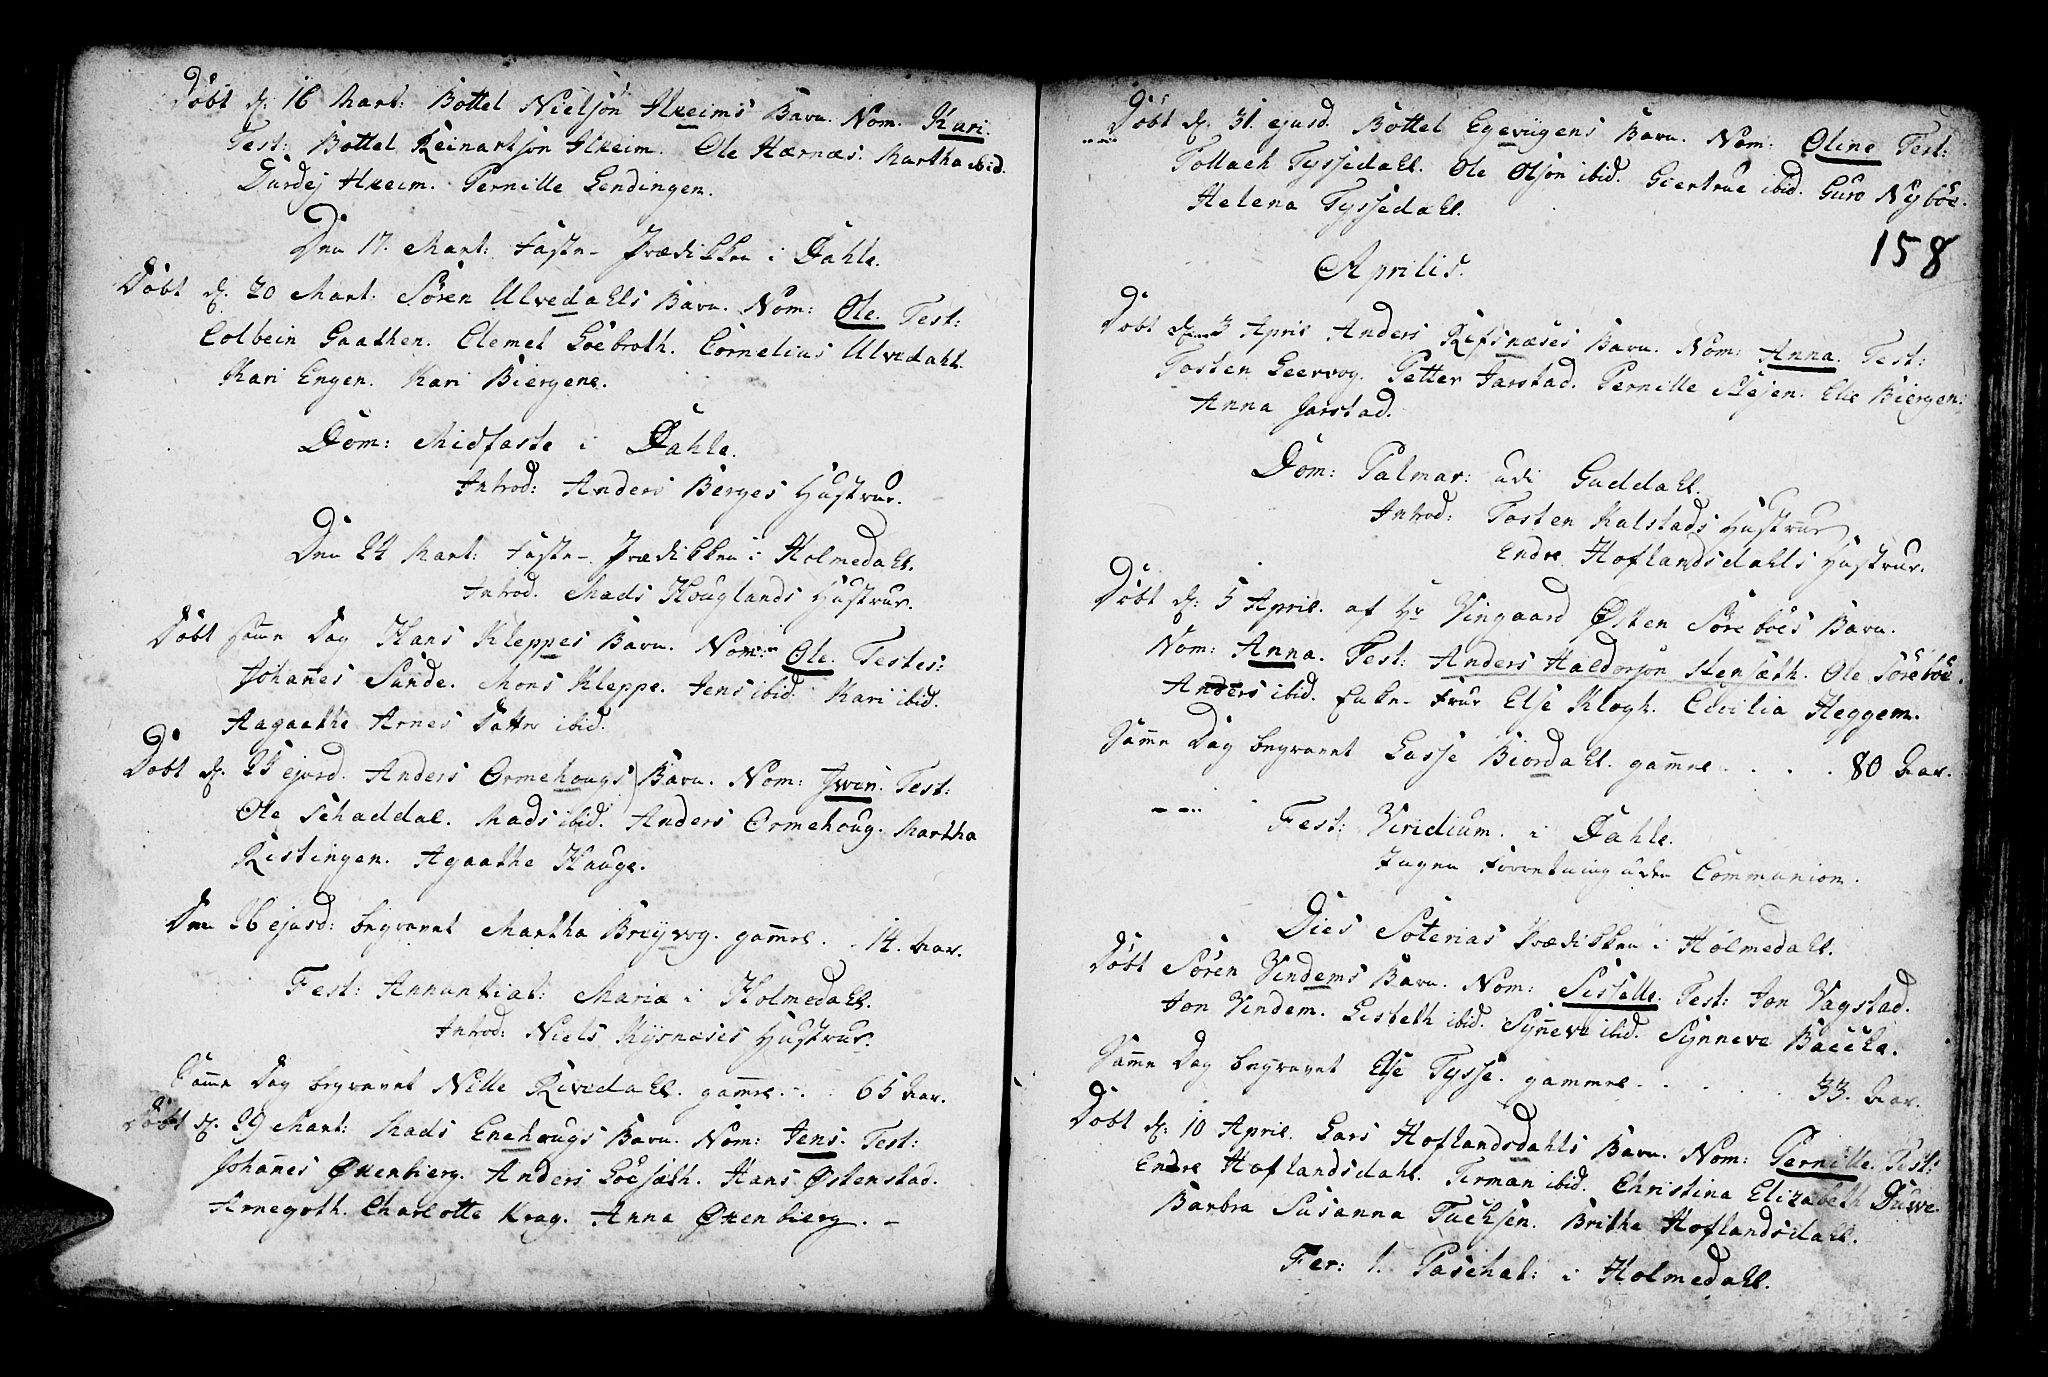 Döbt d: 16 Mart: Bottel Nielsön Hxeims Barn. Nom. Kari.
Test: Bottel Reinartsön Hxeim. Ole Hærnæs. Martha ibid.
Durdej Hxeim. Pernille Lendingen.
Den 17. Mart: Faste-Prædikken i Dahle.
Döbt d. 20 Mart: Sören Ulvedahls Barn. Nom: Ole. Test:
Colbein Gaathen. Clemet Löebroth. Cornelius Ulvedahl.
Kari Engen. Kari Biergene.
Dom: Midfaste i Dahle.
Introd: Anders Berges Hustrue.
Den 24 Mart: Faste-Prædikken i Holmedahl.
Introd. Mads Houglands Hustrue.
Döbt samme Dag Hans Kleppes Barn. Nom: Ole. Testes:
Johañes Sunde. Mons Kleppe. Jens ibid. Kari ibid.
Aagaathe Arnes Datter ibid.
Döbt d. 25 ejusd. Anders Ormehougs Barn. Nom: Iwer. Test:
Ole Schaddal. Mads ibid. Anders Ormehoug. Martha
Ristingen. Agaathe Hauge.
Den 26 ejusd: begravet Martha Breyvog. gam̄el. . 14. Aar.
Fest: Annuntiat: Mariæ i Holmedahl.
Introd: Niels Rysnæses Hustrue.
Sam̄e Dag begravet Nille Rivedahl. gam̄el. . . 65 Aar.
Döbt d. 29 Mart: Mads Enehougs Barn. Nom: Jens. Test:
Johañes Øxenbierg. Anders Löesæth. Hans Østenstad.
Arnegoth. Charlotte Krag. Anna Øxenbierg. -
Döbt d. 31. ejusd. Bottel Egevugens Barn. Nom: Oline Test:
Tollach Tyssedahl. Ole Olsön ibid. Giertrue ibid. Guro Nyböe.
Helena Tyssedahl.
158
Aprilis.
Döbt d. 3 April Anders Refsnæses Barn. Nom: Anna. Test:
Tosten Leervog. Petter Jarstad. Pernille Slejen. Else Biergen.
Anna Jarstad.
Dom: Palmar: udi Guddahl.
Introd: Tosten Kalstads Hustrue
Endre Hoflandsdahls Hustrue.
Döbt d: 5 April. af Hr Vingaard Østen Söreböes Barn.
Nom: Anna. Test: Anders Haldorsön Stensæth. Ole Söreböe.
Anders ibid. Enke-Frue Else Klogh. Cicilia Heggem.
Sam̄e Dag begravet Lasse Biordahl. gam̄el . . . . 80 Aar.
Fest: Viridium. i Dahle.
Ingen Forretning uden Communion.
Dies Soterias Prædikken i Holmedahl.
Döbt Sören Vindems Barn. Nom: Sisselle. Test: Jon Vagstad.
Jon Vindem. Lisbeth ibid. Syñeve ibid. Synneve Bachla.
Sam̄e Dag begravet Else Tysse. gammel . . . . 33. Aar.
Döbt d: 10 April. Lars Hoflandsdahls Barn. Nom: Pernille. Test:
Endre Hoflandsdahl. Tirman ibid. Christina Elizabeth Duwe.
Barbra Susanna Tuchsen. Brithe Hoflandsdahl.
Fer: 1. Paschat: i Holmedahl.